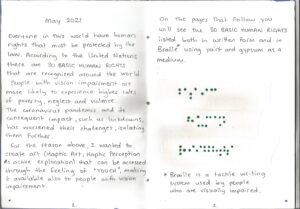 May 2021
Everyone in this world have human
rights that must be protected by the
law. According to the United Nations
there are 30 BASIC HUMAN RIGHTS
that are recognized around the world
People with vision impairment are
more likely to experience higher rates
of poverty, neglect and violence
The coronavirus pandemic and its
consequent impact, such as lockdowns,
has worsened their challenges, isolating
them further.
For the reason above, I wanted to
create art (Haptic Art, Haptic Perception
active exploration) that can be accessed
through the feeling of "TOUCH", making
it available also to people with vision
impairment.
1.
On the pages that follow you
will see the 30 BASIC HUMAN RIGHTS
listed both in written form and in
Braille* using paint and gypsum as a
medium.
* Braille is a tactile writing
system used by people
who are visually impaired.
2.